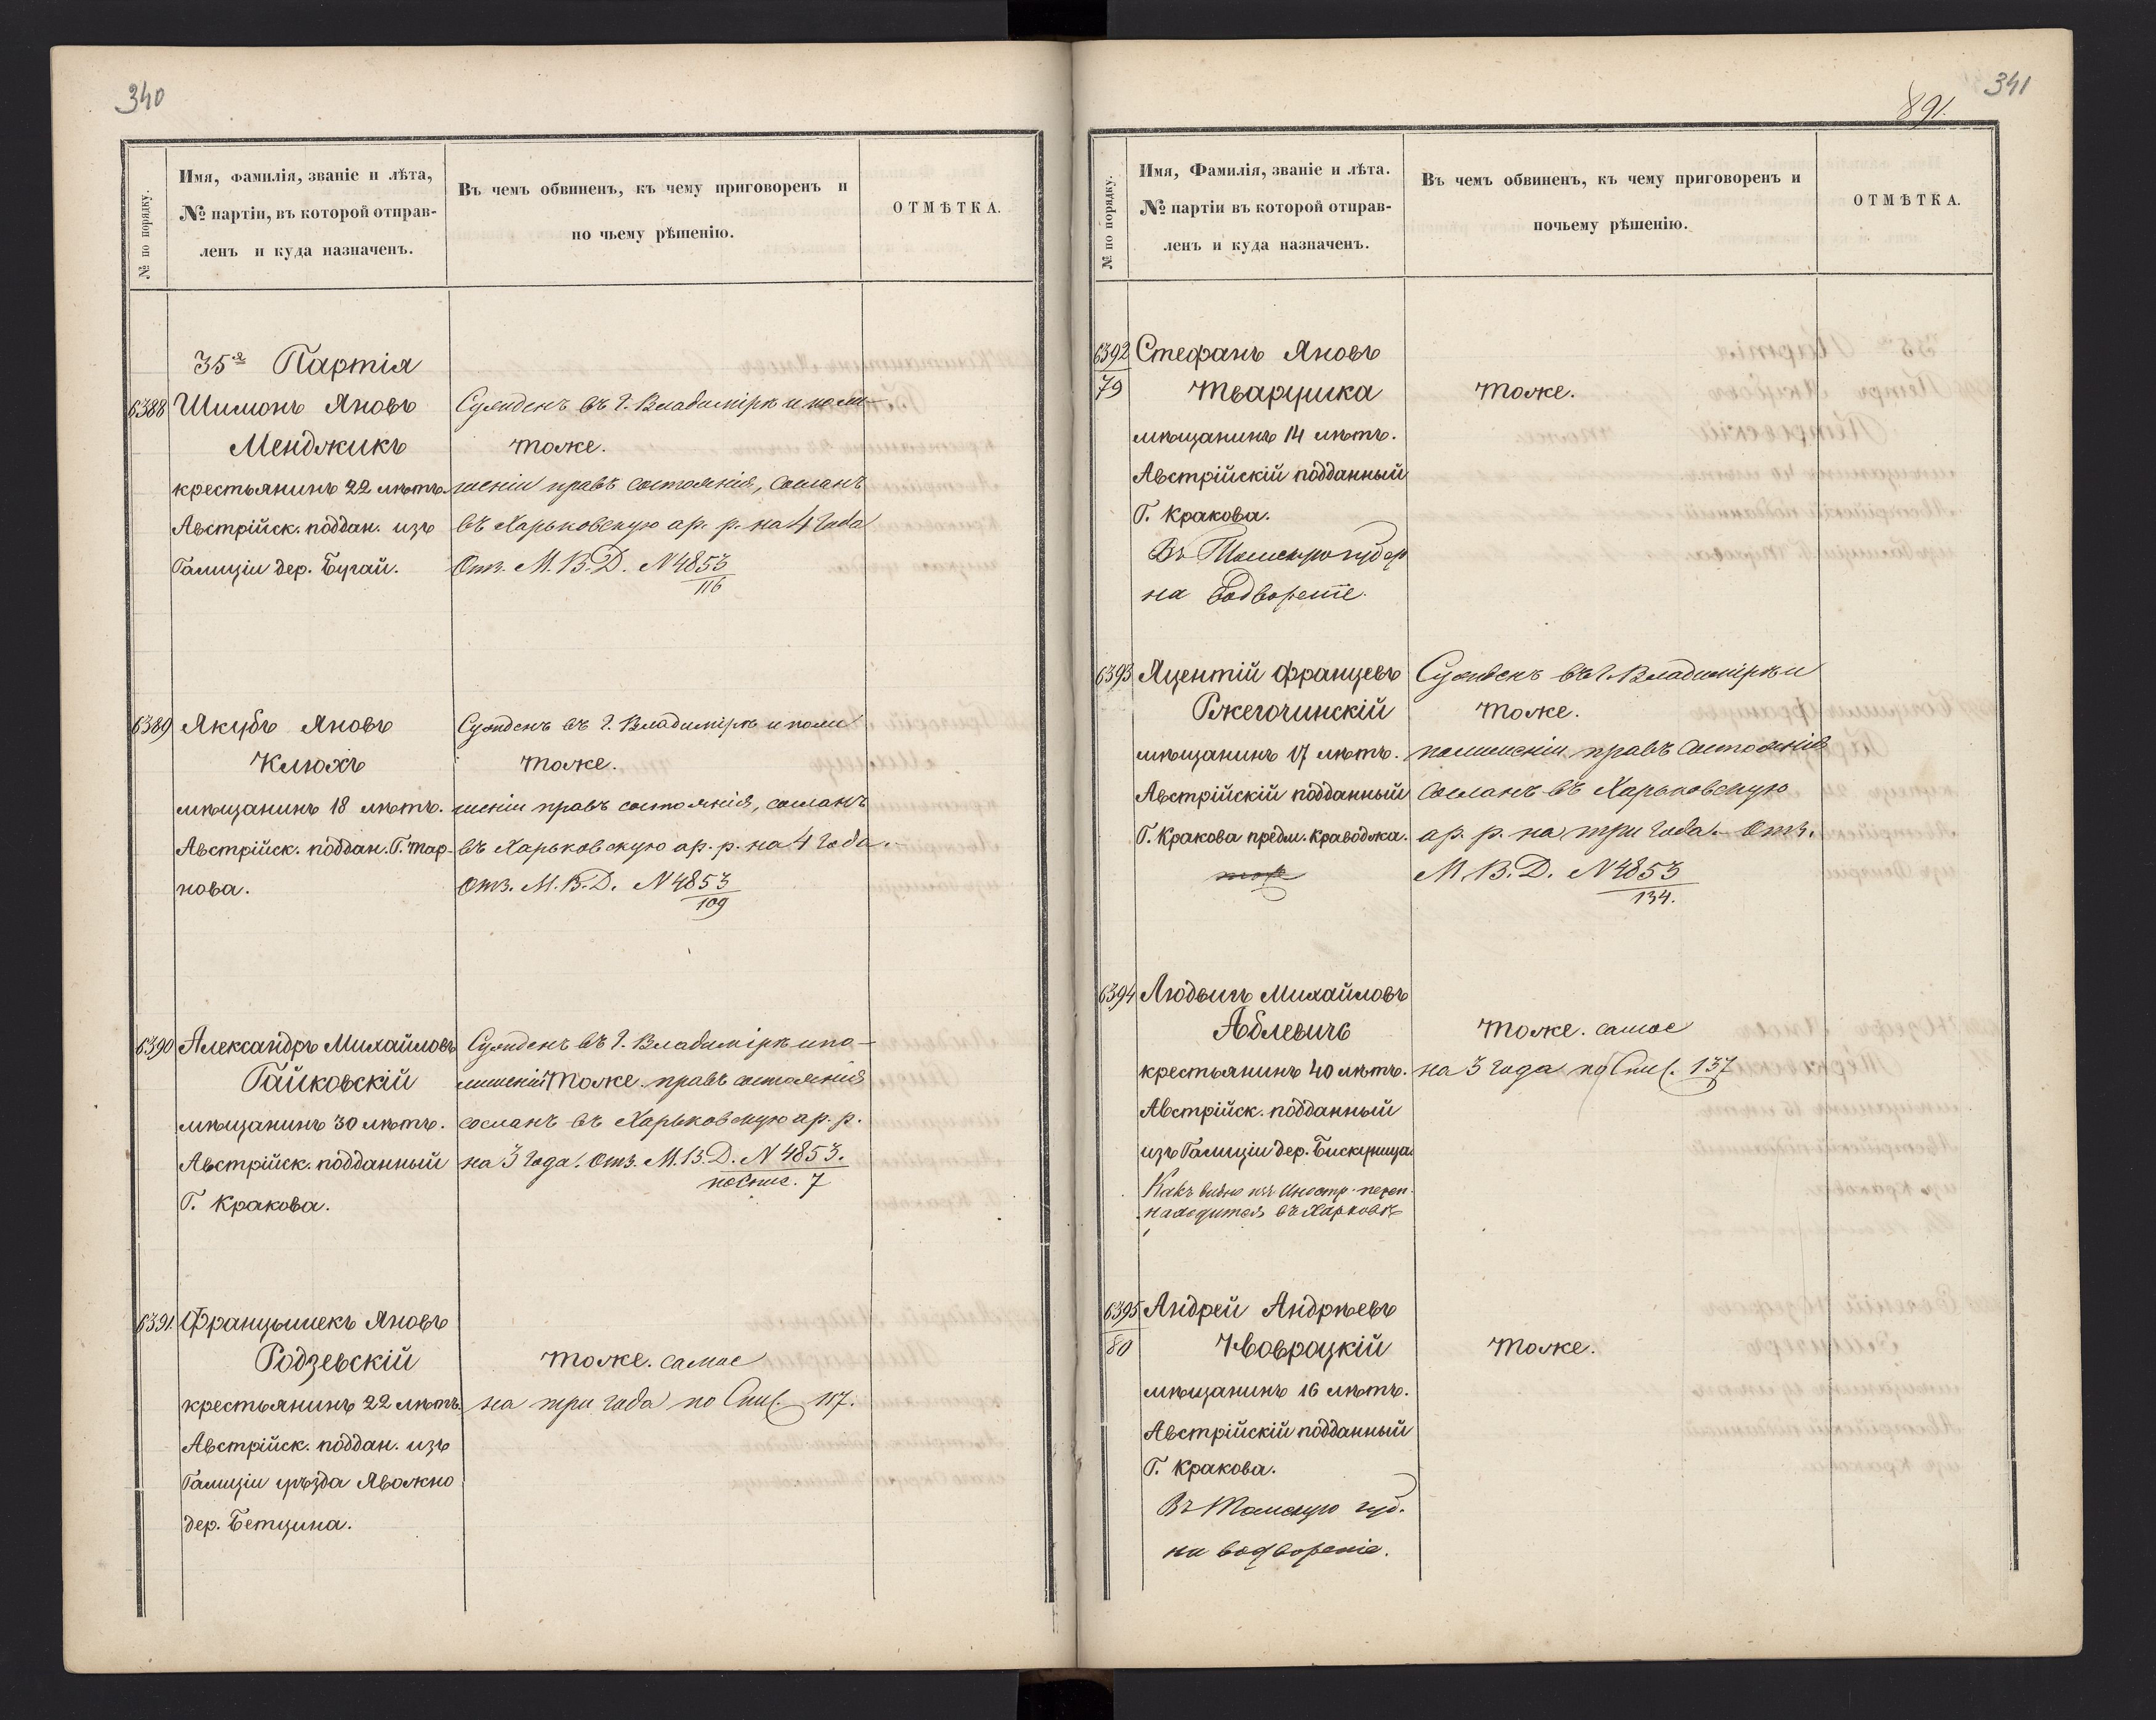 340
№ по порядку.
Имя, фамилія, званіе и лѣта,
№ партіи, въ которой отправ-
ленъ и куда назначенъ.
Въ чемъ обвиненъ, къ чему приговоренъ и
по чьему рѣшенію.
ОТМѢТКА.
35я Партія
6388 Шимонъ Яновъ
Менджикъ
крестьянинъ 22 лѣтъ.
Австрійск. поддан. изъ
Галиціи дер. Бугай.
Сужденъ въ г. Владимірѣ и по ли-
тоже.
шеніи правъ состоянія, сосланъ
въ Харьковскую ар. р. на 4 года
Отз. М. В. Д. N 4853
116
6389 Якубъ Яновъ
Клюхъ
мѣщанинъ 18 лѣтъ.
Австрійск. поддан. Г. Тар-
нова.
Сужденъ въ г. Владимірѣ и по ли
тоже.
шеніи правъ состоянія, сосланъ
въ Харьковскую ар. р. на 4 года.
Отз. М. В. Д. N 4853
109
6390 Александръ Михайловъ
Гайковскій
мѣщанинъ 30 лѣтъ.
Австрійск. подданный
Г. Кракова.
Сужденъ въ г. Владимірѣ и по-
лишеніи тоже. правъ состоянія
сосланъ въ Харьковскую ар. р.
на 3 года. Отз. М. В. Д. N 4853.
по Спис. 7
6391. Францышекъ Яновъ
Родзевскій
крестьянинъ 22 лѣтъ.
Австрійск. поддан. изъ
Галиціи уѣзда Явожно
дер. Бетцина.
тоже. самое
на три года по Спис. 117.
341
891.
№ по порядку.
Имя, Фамилія, званіе и лѣта.
№ партіи въ которой отправ-
ленъ и куда назначенъ.
Въ чемъ обвиненъ, къ чему приговоренъ и
почьему рѣшенію.
ОТМѢТКА.
6392 Стефанъ Яновъ
79 Тварушка
мѣщанинъ 14 лѣтъ.
Австрійскій подданный
Г. Кракова.
Въ Томскую губер
на водвореніе.
тоже.
6393 Яцентій Францевъ
Ржегочинскій
мѣщанинъ 17 лѣтъ.
Австрійскій подданный
Г. Кракова предм. Краводжа.
Сужденъ въ г. Владимірѣ и
тоже.
по лишеніи правъ состоянія
сосланъ въ Харьковскую
ар. р. на три года. Отз.
М. В. Д. N 4853
134.
6394 Людвигъ Михайловъ
Аблевичъ
крестьянинъ 40 лѣтъ.
Австрійск. подданный
изъ Галиціи дер. Бискупица.
Какъ видно изъ Иностр. переп.
находится въ Харьковѣ
тоже. самое
на 3 года по Спис. 137
6395 Андрей Андрѣевъ
80 Новрацкій
мѣщанинъ 16 лѣтъ.
Австрійскій подданный
Г. Кракова.
Въ Томскую губ.
на водвореніе.
тоже.